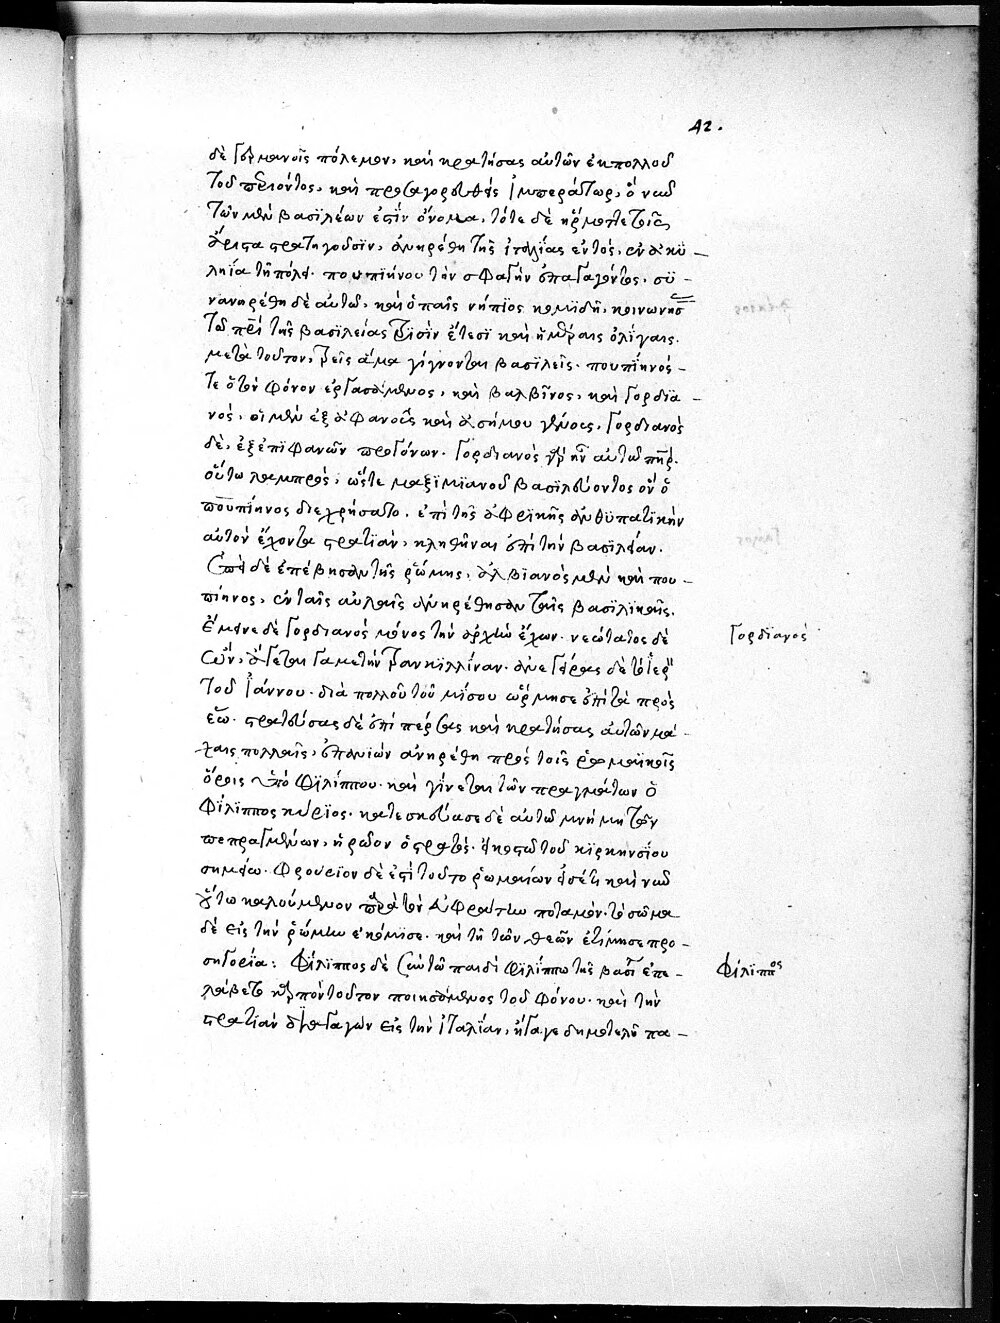 42.
δὲ Γερμανοῖς πόλεμον, καὶ κρατήσας αὐτῶν ἐκ πολλοῦ
τοῦ περιόντος, καὶ προσαγορευθεὶς ἰμπεράτωρ, ὃ νῦν
τῶν μὲν βασιλέων ἐστὶν ὄνομα, τότε δὲ ἥρμοττε τοῖς
ἄριστα στρατηγοῦσιν, ἀνῃρέθη τῆς ἰταλίας ἐντός, ἐν ἀκυ –
ληία τῇ πόλει πουπιήνου τὴν σφαγὴν ἐπαγαγόντος, συ –
νανῃρέθη δὲ αὐτῷ, καὶ ὁ παῖς νήπιος κομιδῆ, κοινωνήσας
τῷ πρὶ τῆς βασιλείας τρισὶν ἔτεσι καὶ ἡμέραις ὀλίγαις.
μετὰ τοῦτον, τρεῖς ἅμα γίγνονται βασιλεῖς· πουπιηνός –
τε ὁ τὸν φόνον ἐργασάμενος, καὶ βαλβῖνος, καὶ Γορδια –
νός, οἱ μὲν ἐξ ἀφανοῦς καὶ ἀσήμου γένους, Γορδιανὸς
δὲ, ἐξ ἐπιφανῶν προγόνων. Γορδιανὸς γὰρ ἦν αὐτῷ πηρ.
οὕτω λαμπρὸς, ὥστε μαξιμιανοῦ βασιλεύοντος ὃν ὁ
πουπίηνος διεχρήσατο, ἐπὶ τῆς ἀφρικῆς ἀνθυπατικὴν
αὐτὸν ἔχοντα στρατιὰν, κληθῆναι ἐπὶ τὴν βασιλείαν.
Ὡς δὲ ἐπέβησαν τῆς ῥώμης, ἀλβιανὸς μὲν καὶ που –
πίηνος, ἐν ταῖς αὐλαῖς ἀνῃρέθησαν ταῖς βασιλικαῖς.
ἔμεινε δὲ Γορδιανὸς μόνος τὴν ἀρχὴν ἔχων. νεώτατος δὲ
ὢν, ἄγεται γαμετὴν τρανκιλλίναν. ἀνεῳγρας δὲ τὸ ἱερὸν
τοῦ ἰάννου. διὰ πολλοῦ τοῦ μίσου ὥρμησε ἐπὶ τὰ πρὸς
ἕω. στρατεύσας δὲ ἐπὶ πέρσας καὶ κρατήσας αὐτῶν μά –
χαις πολλαῖς, ἐπανιὼν ἀνῃρέθη πρὸς τοῖς ῥωμαικοῖς
ὅροις ὑπὸ φιλίππου. καὶ γίνεται τῶν πραγμάτων ὁ
φίλιππος κύριος. κατεσκεύασε δὲ αὐτῷ μνήμη τῶν
πεπραγμένων, ἡρῷον ὁ στρατός. εἰκοστῷ τοῦ κιρκησίου
σημείω. φρούριον δὲ ἐστὶ τοῦτο ῥωμαίων εἰσέτι καὶ νῦν
οὕτω καλούμενον παρὰ τὸν εὐφράτην ποταμόν. τὸ σῶμα
δὲ εἰς τὴν ῥώμην ἐκόμισε. καὶ τῆ τῶν θεῶν ἐτίμησε προ –
σηγορία: Φίλιππος δὲ σὺν τῷ παιδὶ φιλίππω τῆς βασι ἐπε –
λάβετο ὕποπτον τοῦτον ποιησάμενος τοῦ φόνου. καὶ τὴν
στρατιὰν διαγαγὼν εἰς τὴν ἰταλίαν, ἤγαγε δημοτελῆ πα –
Γορδιανός
Φίλιππος